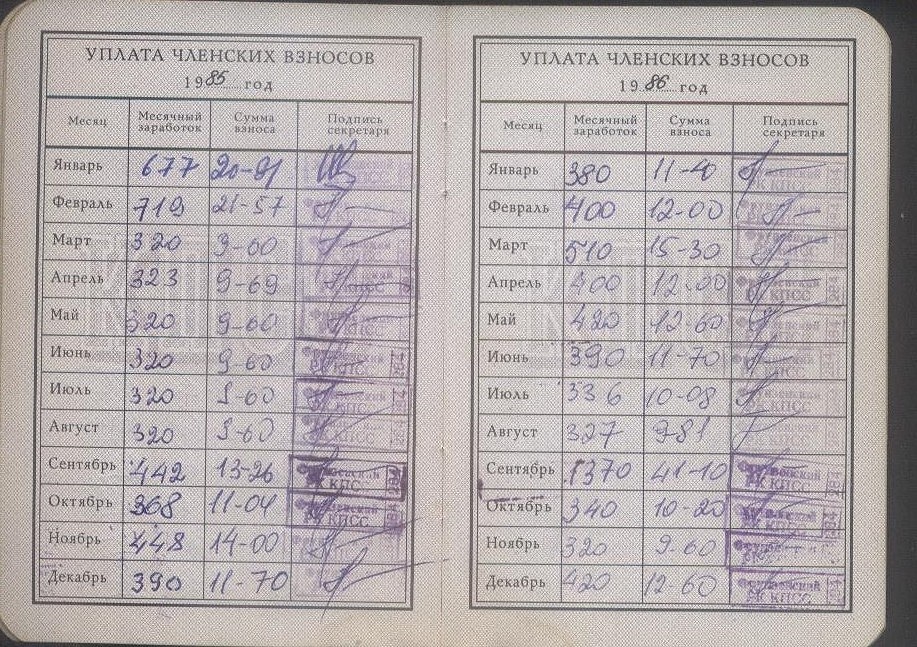 УПЛАТА ЧЛЕНСКИХ ВЗНОСОВ
1985 год
Месяц Месячный заработок Сумма взноса Подпись секретаря
Январь 677 20-91
Февраль 719 21-57
Март 320 9-60
Апрель 323 9-69
Май 320 9-60
Июнь 320 9-60
Июль 320 9-60
Август 320 9-60 КПСС
Сентябрь 442 13-26 КПС
Октябрь 368 11-04 КПСС
Ноябрь 448 14-00
Декабрь 390 11-70
УПЛАТА ЧЛЕНСКИХ ВЗНОСОВ
1986 год
Месяц Месячный заработок Сумма взноса Подпись секретаря
Январь 380 11-40 КПСС
Февраль 400 12-00
Март 510 15-30
Апрель 400 12-00 КПСС
Май 420 12-60
Июнь 390 11-70
Июль 336 10-08 КПСС
Август 327 9-81
Сентябрь 1370 41-10 КПСС
Октябрь 340 10-20 КПСС
Ноябрь 320 9-60
Декабрь 420 12-60 РК КПСС